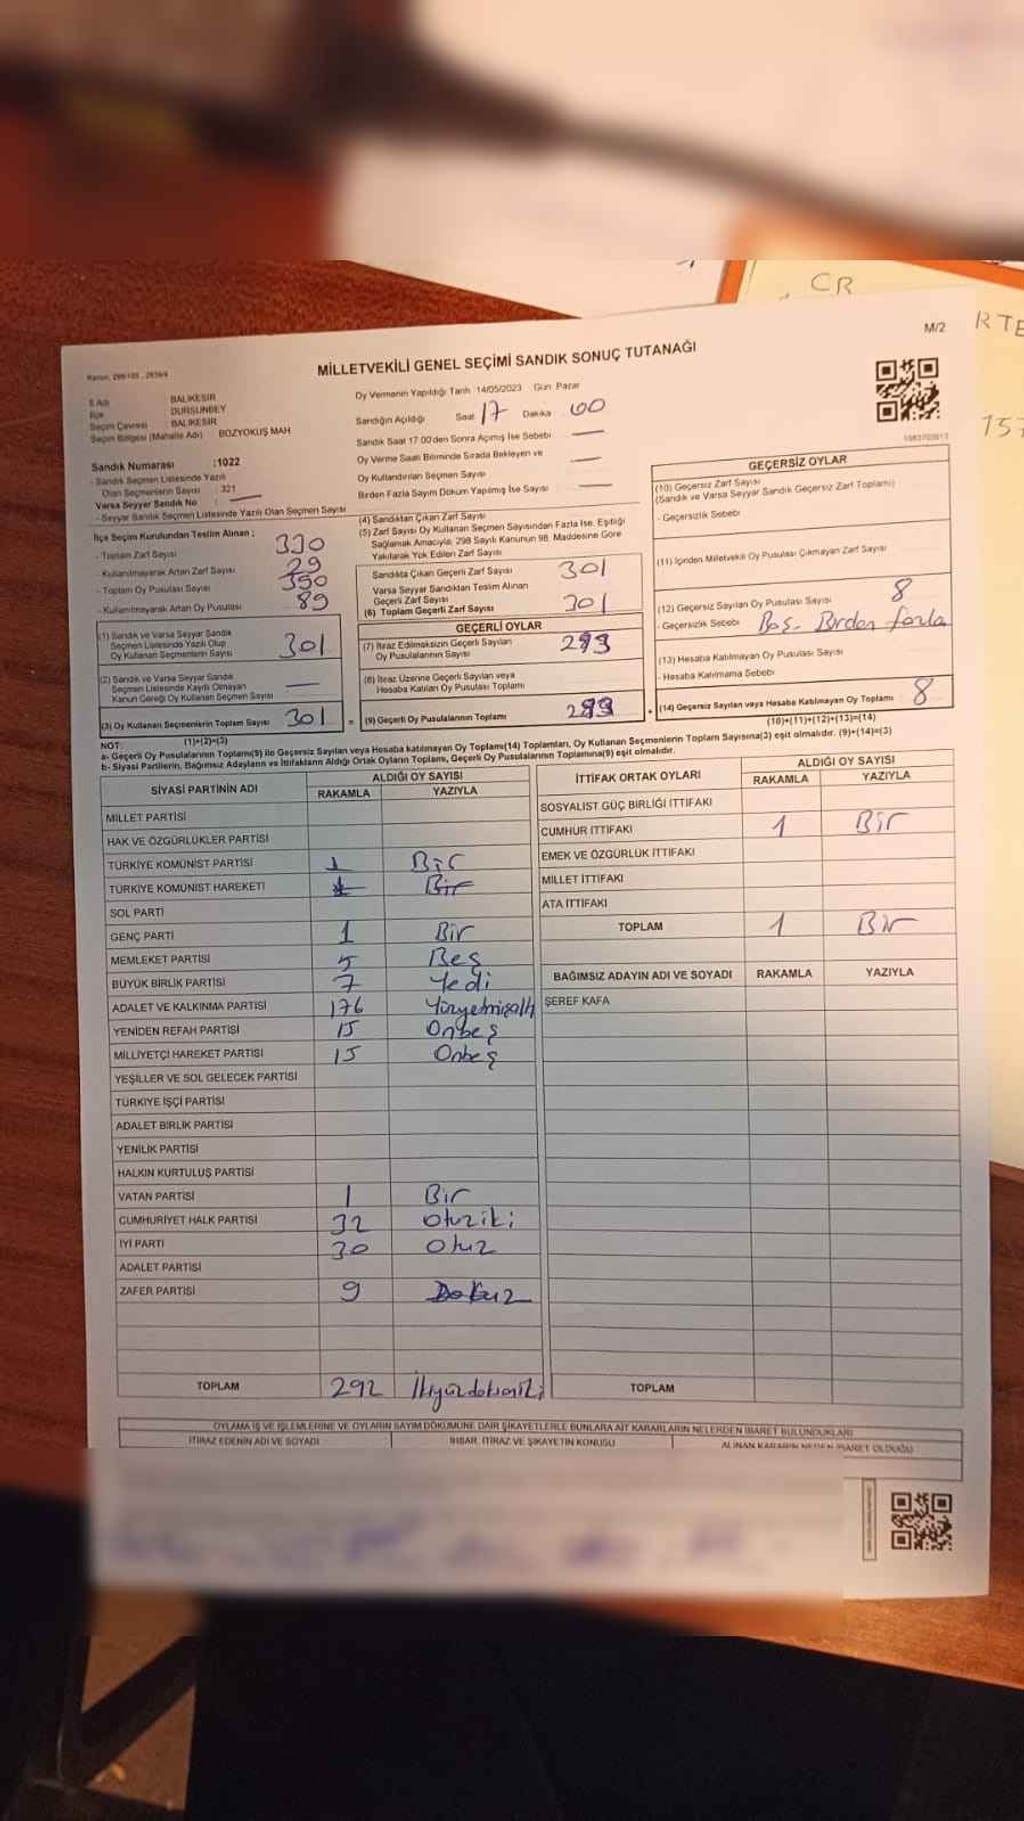 CR
RTE
157
M/2
MİLLETVEKİLİ GENEL SEÇİMİ SANDIK SONUÇ TUTANAĞI
İl Adı BALIKESİR
İlçe DURSUNBEY
Seçim Çevresi BALIKESİR
Seçim Bölgesi (Mahalle Adı) BOZYOKUŞ MAH
Sandık Numarası :1022
- Sandık Seçmen Listesinde Yazılı
Olan Seçmenlerin Sayısı : 321
Varsa Seyyar Sandık No :
- Seyyar Sandık Seçmen Listesinde Yazılı Olan Seçmen Sayısı
Oy Vermenin Yapıldığı Tarih 14/05/2023 Gün Pazar
Sandığın Açıldığı Saat 17 Dakika 00
Sandık Saat 17.00'den Sonra Açılmış İse Sebebi —
Oy Verme Saati Bitiminde Sırada Bekleyen ve
Oy Kullandırılan Seçmen Sayısı —
Birden Fazla Sayım Döküm Yapılmış İse Sayısı —
İlçe Seçim Kurulundan Teslim Alınan ;
- Toplam Zarf Sayısı 330
- Kullanılmayarak Artan Zarf Sayısı 29
- Toplam Oy Pusulası Sayısı 390
- Kullanılmayarak Artan Oy Pusulası 89
(1) Sandık ve Varsa Seyyar Sandık
Seçmen Listesinde Yazılı Olup
Oy Kullanan Seçmenlerin Sayısı 301
(2) Sandık ve Varsa Seyyar Sandık
Seçmen Listesinde Kayıtlı Olmayan
Kanun Gereği Oy Kullanan Seçmen Sayısı —
(3) Oy Kullanan Seçmenlerin Toplam Sayısı 301
(1)+(2)=(3)
(4) Sandıktan Çıkan Zarf Sayısı
(5) Zarf Sayısı Oy Kullanan Seçmen Sayısından Fazla İse, Eşitliği
Sağlamak Amacıyla, 298 Sayılı Kanunun 98. Maddesine Göre
Yakılarak Yok Edilen Zarf Sayısı
Sandıkta Çıkan Geçerli Zarf Sayısı 301
Varsa Seyyar Sandıktan Teslim Alınan
Geçerli Zarf Sayısı
(6) Toplam Geçerli Zarf Sayısı 301
GEÇERLİ OYLAR
(7) İtiraz Edilmeksizin Geçerli Sayılan
Oy Pusulalarının Sayısı 293
(8) İtiraz Üzerine Geçerli Sayılan veya
Hesaba Katılan Oy Pusulası Toplamı
= (9) Geçerli Oy Pusulalarının Toplamı 293
GEÇERSİZ OYLAR
(10) Geçersiz Zarf Sayısı
(Sandık ve Varsa Seyyar Sandık Geçersiz Zarf Toplamı)
- Geçersizlik Sebebi
(11) İçinden Milletvekili Oy Pusulası Çıkmayan Zarf Sayısı
(12) Geçersiz Sayılan Oy Pusulası Sayısı 8
- Geçersizlik Sebebi Boş - Birden fazla
(13) Hesaba Katılmayan Oy Pusulası Sayısı
- Hesaba Katılmama Sebebi
+ (14) Geçersiz Sayılan veya Hesaba Katılmayan Oy Toplamı 8
(10)+(11)+(12)+(13)=(14)
NOT:
a- Geçerli Oy Pusulalarının Toplamı(9) ile Geçersiz Sayılan veya Hesaba katılmayan Oy Toplamı(14) Toplamları, Oy Kullanan Seçmenlerin Toplam Sayısına(3) eşit olmalıdır. (9)+(14)=(3)
b- Siyasi Partilerin, Bağımsız Adayların ve İttifakların Aldığı Ortak Oyların Toplamı, Geçerli Oy Pusulalarının Toplamına(9) eşit olmalıdır.
SİYASİ PARTİNİN ADI ALDIĞI OY SAYISI
RAKAMLA YAZIYLA
MİLLET PARTİSİ
HAK VE ÖZGÜRLÜKLER PARTİSİ
TÜRKİYE KOMÜNİST PARTİSİ 1 Bir
TÜRKİYE KOMÜNİST HAREKETİ 1 Bir
SOL PARTİ
GENÇ PARTİ 1 Bir
MEMLEKET PARTİSİ 5 Beş
BÜYÜK BİRLİK PARTİSİ 7 Yedi
ADALET VE KALKINMA PARTİSİ 176 Yüzyetmişaltı
YENİDEN REFAH PARTİSİ 15 Onbeş
MİLLİYETÇİ HAREKET PARTİSİ 15 Onbeş
YEŞİLLER VE SOL GELECEK PARTİSİ
TÜRKİYE İŞÇİ PARTİSİ
ADALET BİRLİK PARTİSİ
YENİLİK PARTİSİ
HALKIN KURTULUŞ PARTİSİ
VATAN PARTİSİ 1 Bir
CUMHURİYET HALK PARTİSİ 32 Otuziki
İYİ PARTİ 30 Otuz
ADALET PARTİSİ
ZAFER PARTİSİ 9 Dokuz
TOPLAM 292 İkiyüzdoksaniki
İTTİFAK ORTAK OYLARI ALDIĞI OY SAYISI
RAKAMLA YAZIYLA
SOSYALİST GÜÇ BİRLİĞİ İTTİFAKI
CUMHUR İTTİFAKI 1 Bir
EMEK VE ÖZGÜRLÜK İTTİFAKI
MİLLET İTTİFAKI
ATA İTTİFAKI
TOPLAM 1 Bir
BAĞIMSIZ ADAYIN ADI VE SOYADI RAKAMLA YAZIYLA
ŞEREF KAFA
TOPLAM
OYLAMA İŞ VE İŞLEMLERİNE VE OYLARIN SAYIM DÖKÜMÜNE DAİR ŞİKAYETLERLE BUNLARA AİT KARARLARIN NELERDEN İBARET BULUNDUKLARI
İTİRAZ EDENİN ADI VE SOYADI İHBAR, İTİRAZ VE ŞİKAYETİN KONUSU ALINAN KARARIN NEDEN İBARET OLDUĞU